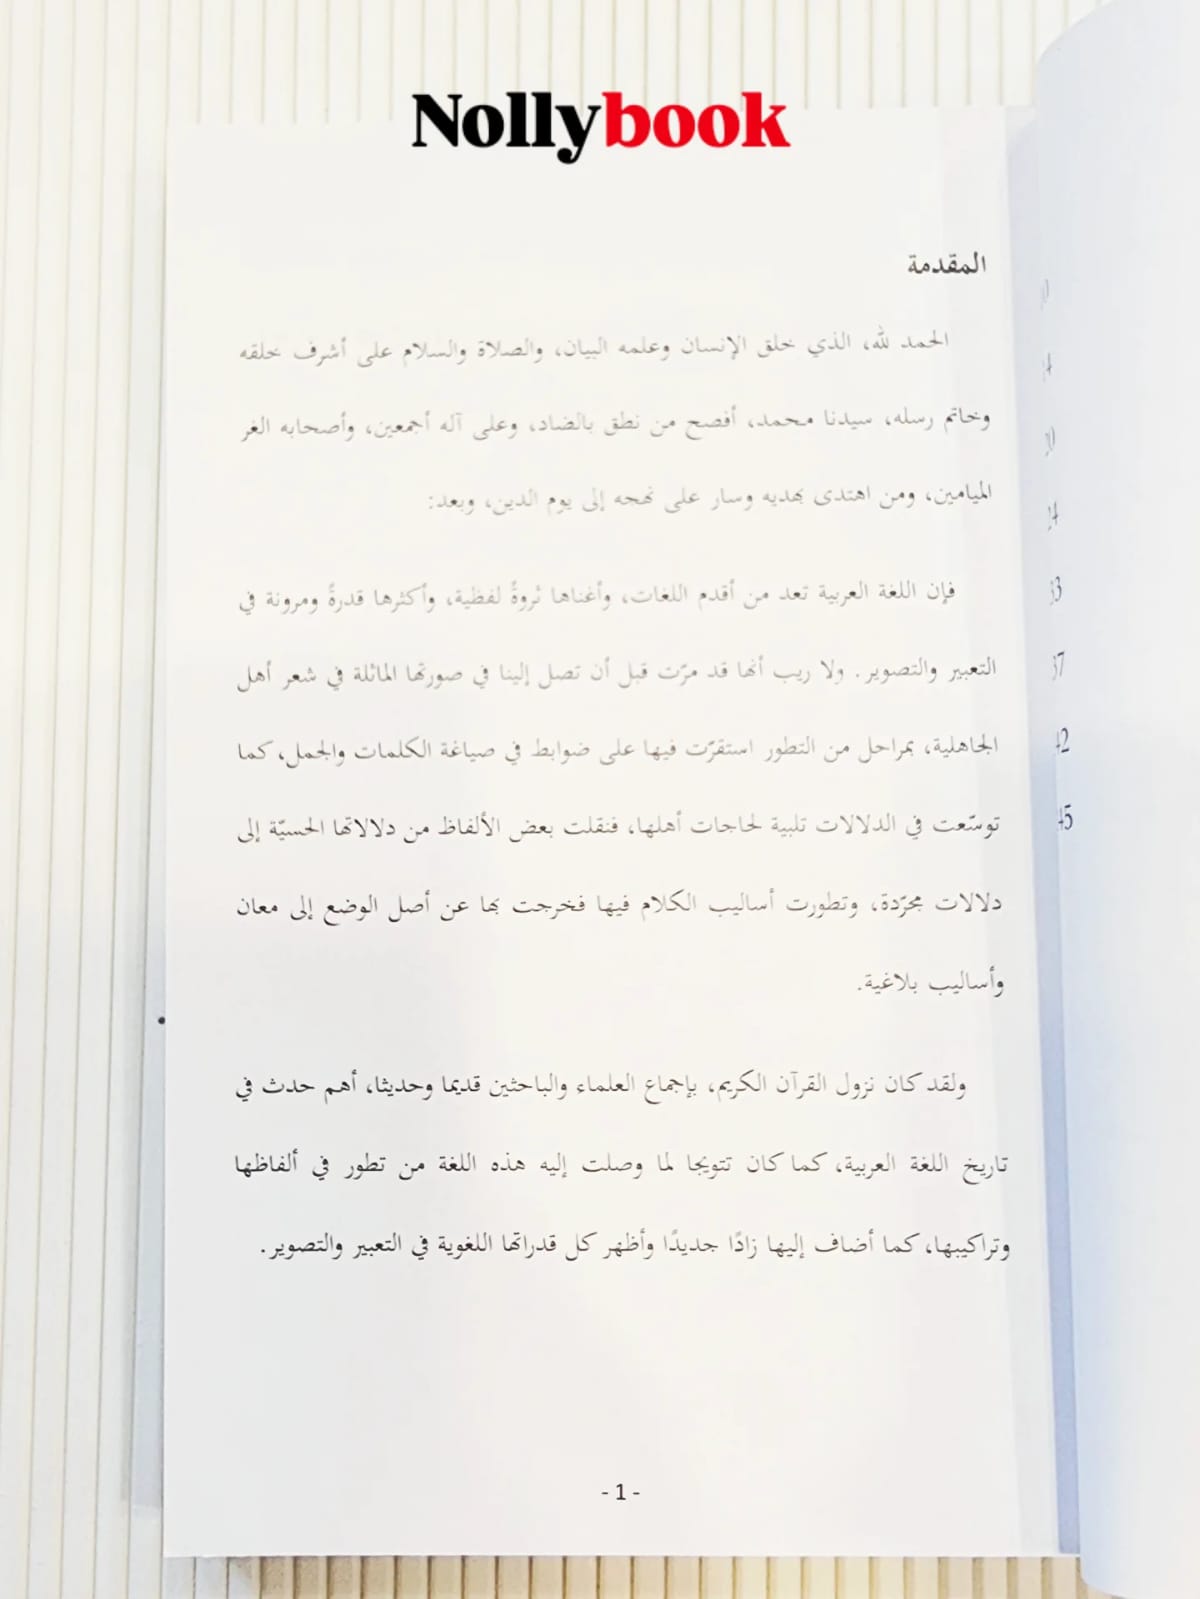 Nollybook
المقدمة
الحمد لله، الذي خلق الإنسان وعلمه البيان، والصلاة والسلام على أشرف خلقه
وخاتم رسله، سيدنا محمد، أفصح من نطق بالضاد، وعلى آله أجمعين، وأصحابه الغر
الميامين، ومن اهتدى بهديه وسار على نهجه إلى يوم الدين، وبعد:
فإن اللغة العربية تعد من أقدم اللغات، وأغناها ثروةً لفظية، وأكثرها قدرةً ومرونة في
التعبير والتصوير. ولا ريب أنها قد مرّت قبل أن تصل إلينا في صورتها الماثلة في شعر أهل
الجاهلية، بمراحل من التطور استقرّت فيها على ضوابط في صياغة الكلمات والجمل، كما
توسّعت في الدلالات تلبية لحاجات أهلها، فنقلت بعض الألفاظ من دلالاتها الحسيّة إلى
دلالات مجرّدة، وتطورت أساليب الكلام فيها فخرجت بها عن أصل الوضع إلى معان
وأساليب بلاغية.
ولقد كان نزول القرآن الكريم، بإجماع العلماء والباحثين قديما وحديثا، أهم حدث في
تاريخ اللغة العربية، كما كان تتويجا لما وصلت إليه هذه اللغة من تطور في ألفاظها
وتراكيبها، كما أضاف إليها زادًا جديدًا وأظهر كل قدراتها اللغوية في التعبير والتصوير.
- 1 -
24
33
37
42
45